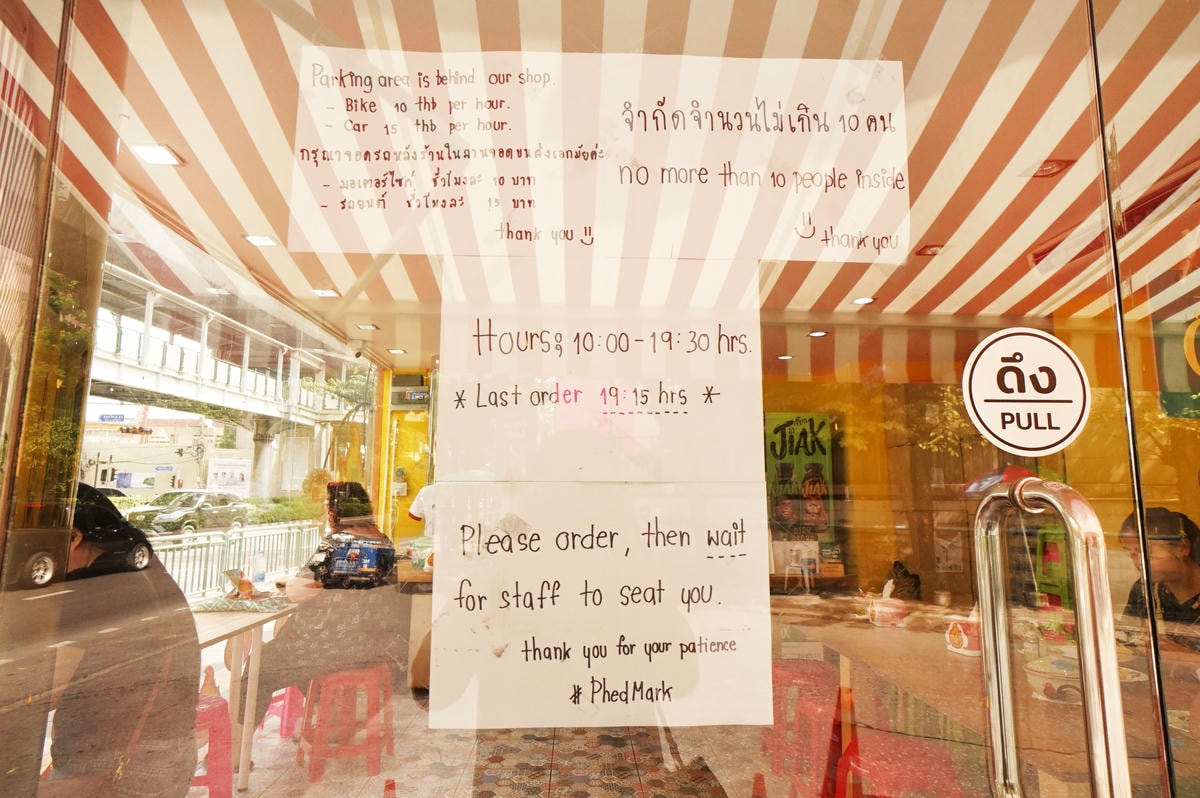 Parking area is behind our shop.
- Bike 10 thb per hour.
- Car 15 thb per hour.
กรุณาจอดรถหลังร้านในลานจอดขนส่งเอกมัยค่ะ
- มอเตอร์ไซค์ ชั่วโมงละ 10 บาท
- รถยนต์ ชั่วโมงละ 15 บาท
thank you
จำกัดจำนวนไม่เกิน 10 คน
no more than 10 people inside
thank you
Hours: 10:00-19:30 hrs.
* Last order 19:15 hrs *
Please order, then wait
for staff to seat you.
thank you for your patience
# PhedMark
ดึง
PULL
JIAK